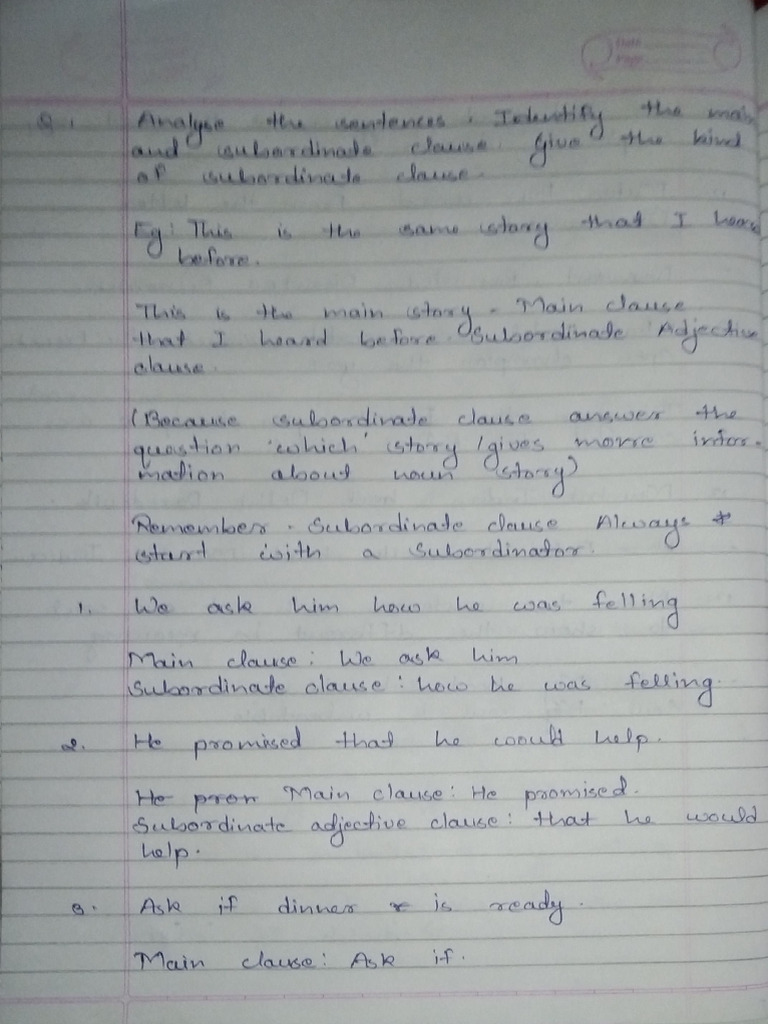 Q 1. Analyse the sentences. Identify the main
and subordinate clause. Give the kind
of subordinate clause.
Eg: This is the same story that I heard
before.
This is the main story - Main clause
that I heard before. Subordinate Adjective
clause.
(Because subordinate clause answer the
question 'which' story / gives more infor-
mation about noun story)
Remember - Subordinate clause Always
start with a subordinator.
1. We ask him how he was felling
Main clause: We ask him
Subordinate clause: how he was felling.
2. He promised that he would help.
He pron Main clause: He promised.
Subordinate adjective clause: that he would
help.
3. Ask if dinner is ready.
Main clause: Ask if.